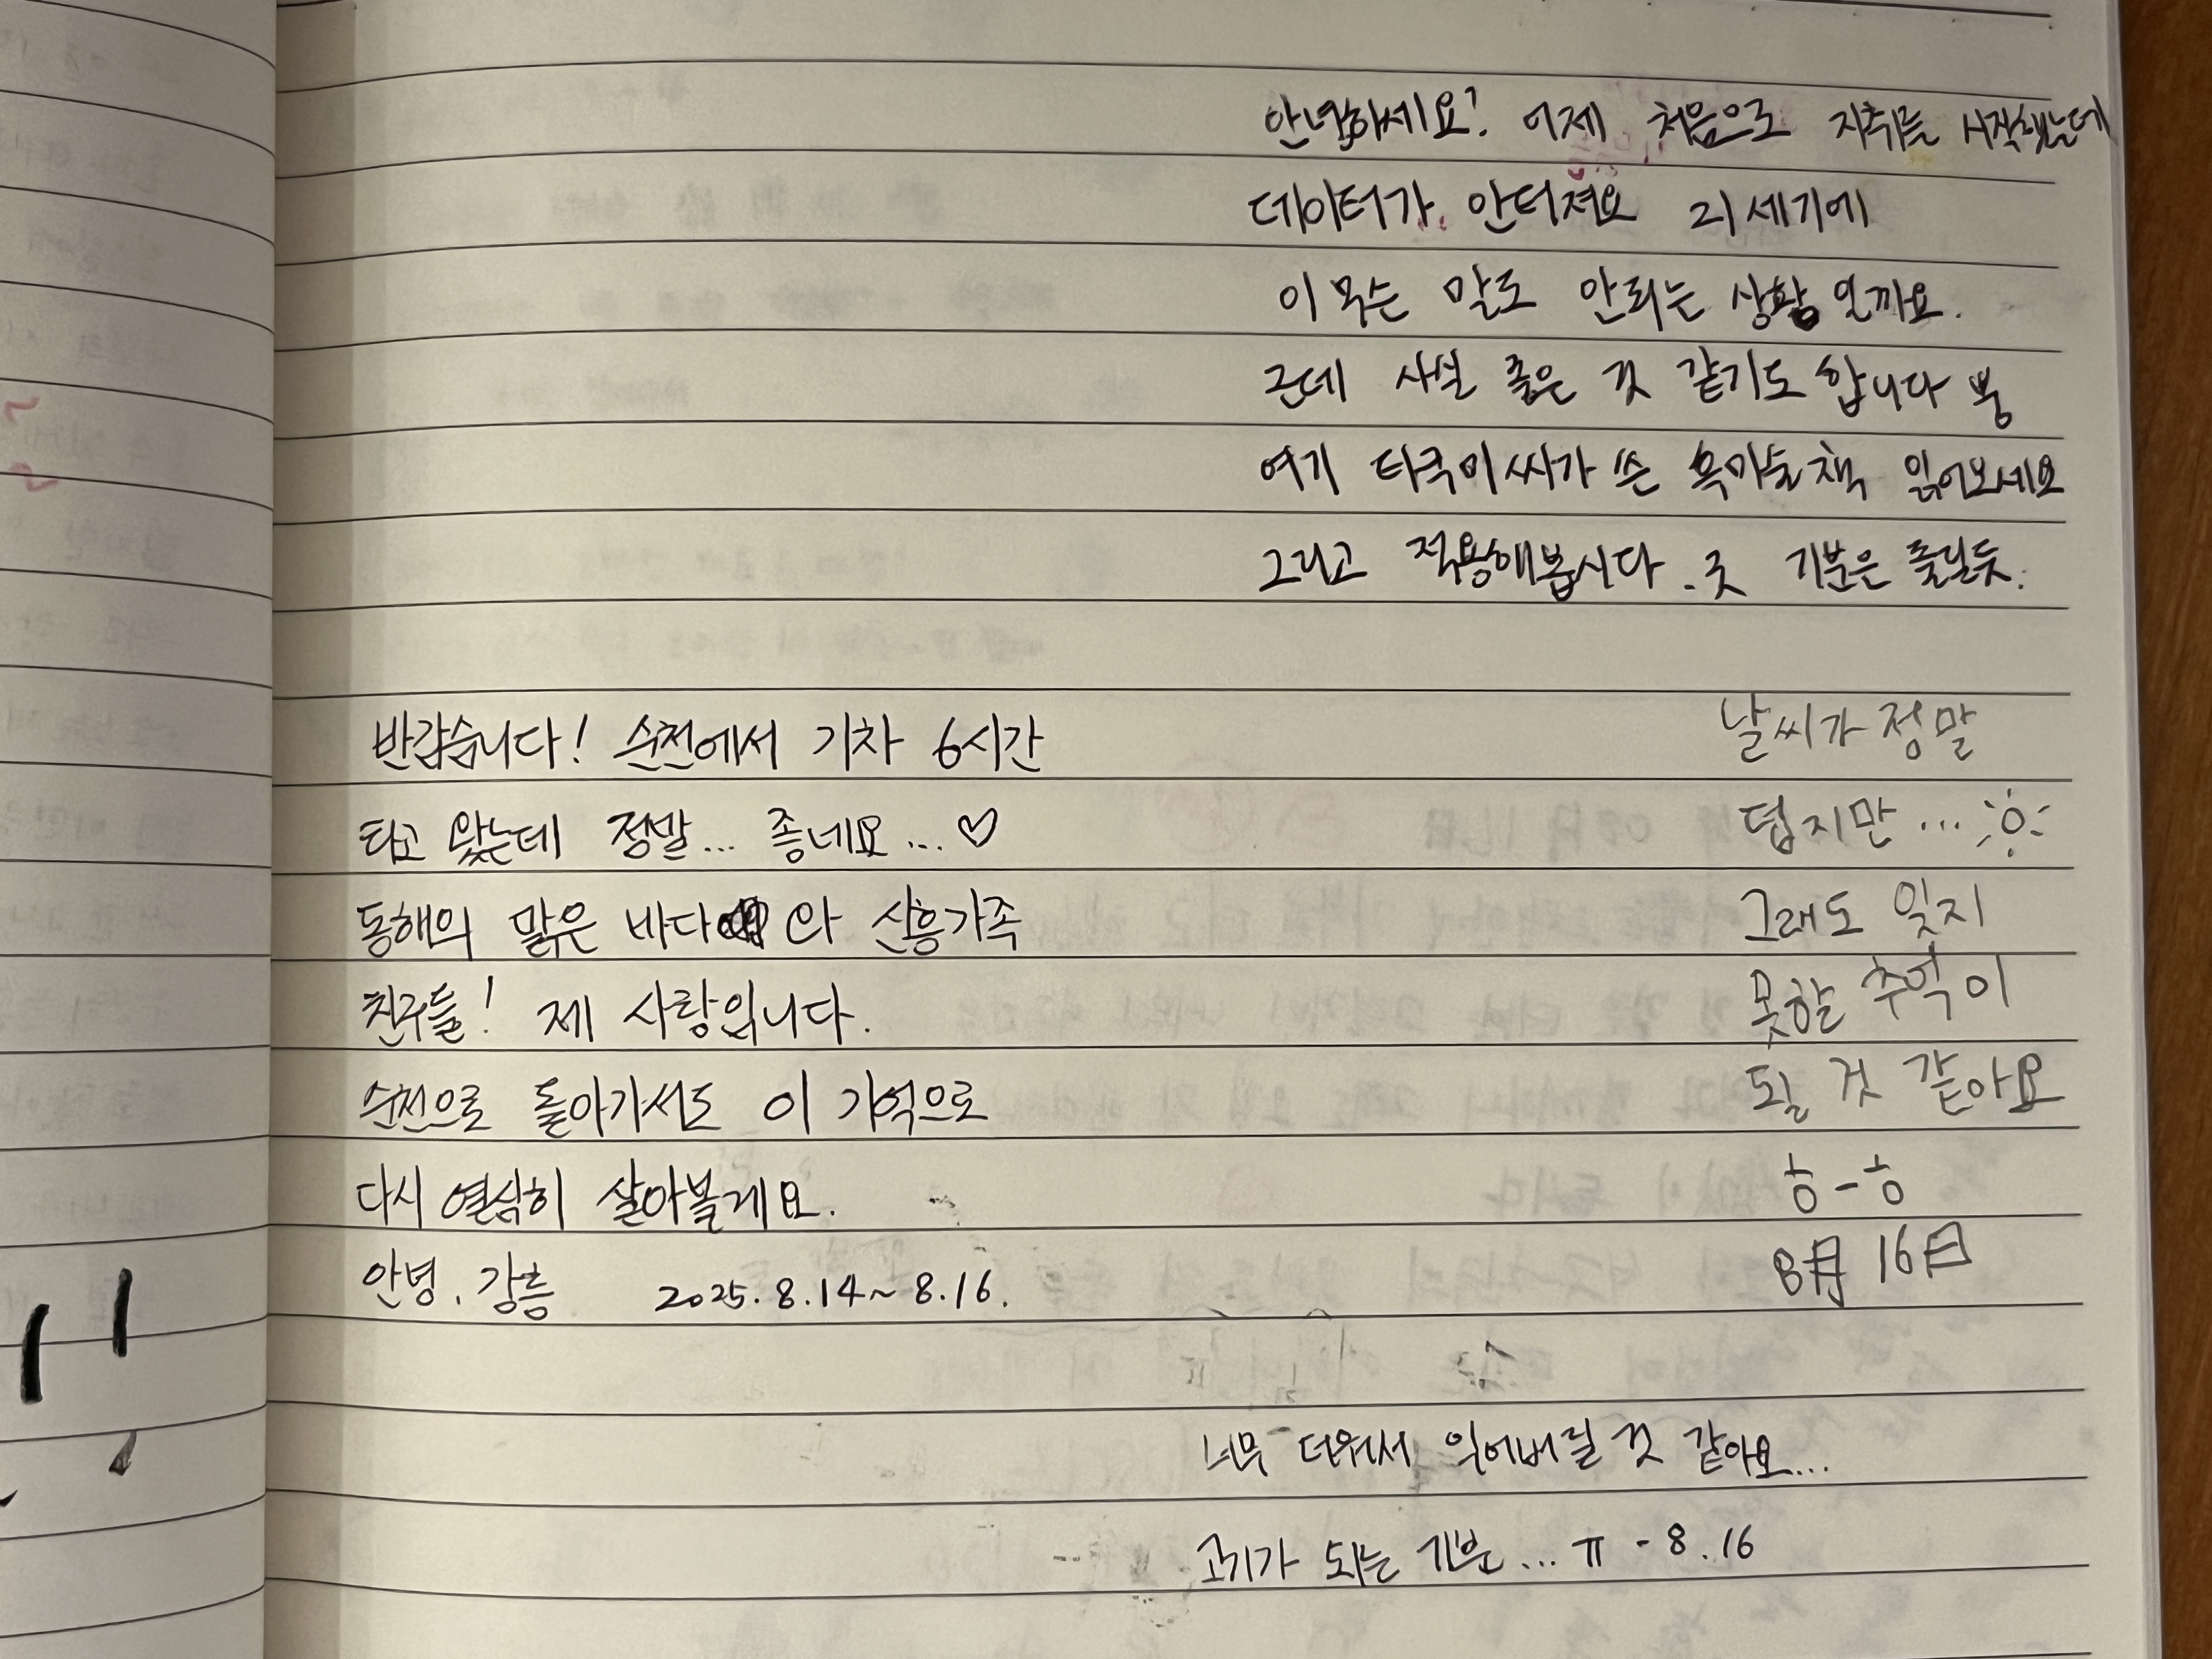 안녕하세요! 어제 처음으로 자취를 시작했는데
데이터가 안터져요 21세기에
이 무슨 말도 안되는 상황 일까요.
근데 사실 좋은 것 같기도 합니다 붕
여기 타쿠미씨가 쓴 흑마술책 읽어보세요
그리고 적용해봅시다. 굿 기분은 풀릴듯.
반갑습니다! 순천에서 기차 6시간
타고 왔는데 정말... 좋네요...♡
동해의 맑은 바다와 신흥가족
친구들! 제 사랑입니다.
순천으로 돌아가서도 이 기억으로
다시 열심히 살아볼게요.
안녕, 강릉 2025.8.14~8.16.
날씨가 정말
덥지만...
그래도 잊지
못할 추억이
될 것 같아요
ㅎ-ㅎ
8月 16日
너무 더워서 익어버릴 것 같아요...
고기가 되는 기분...ㅠ - 8.16